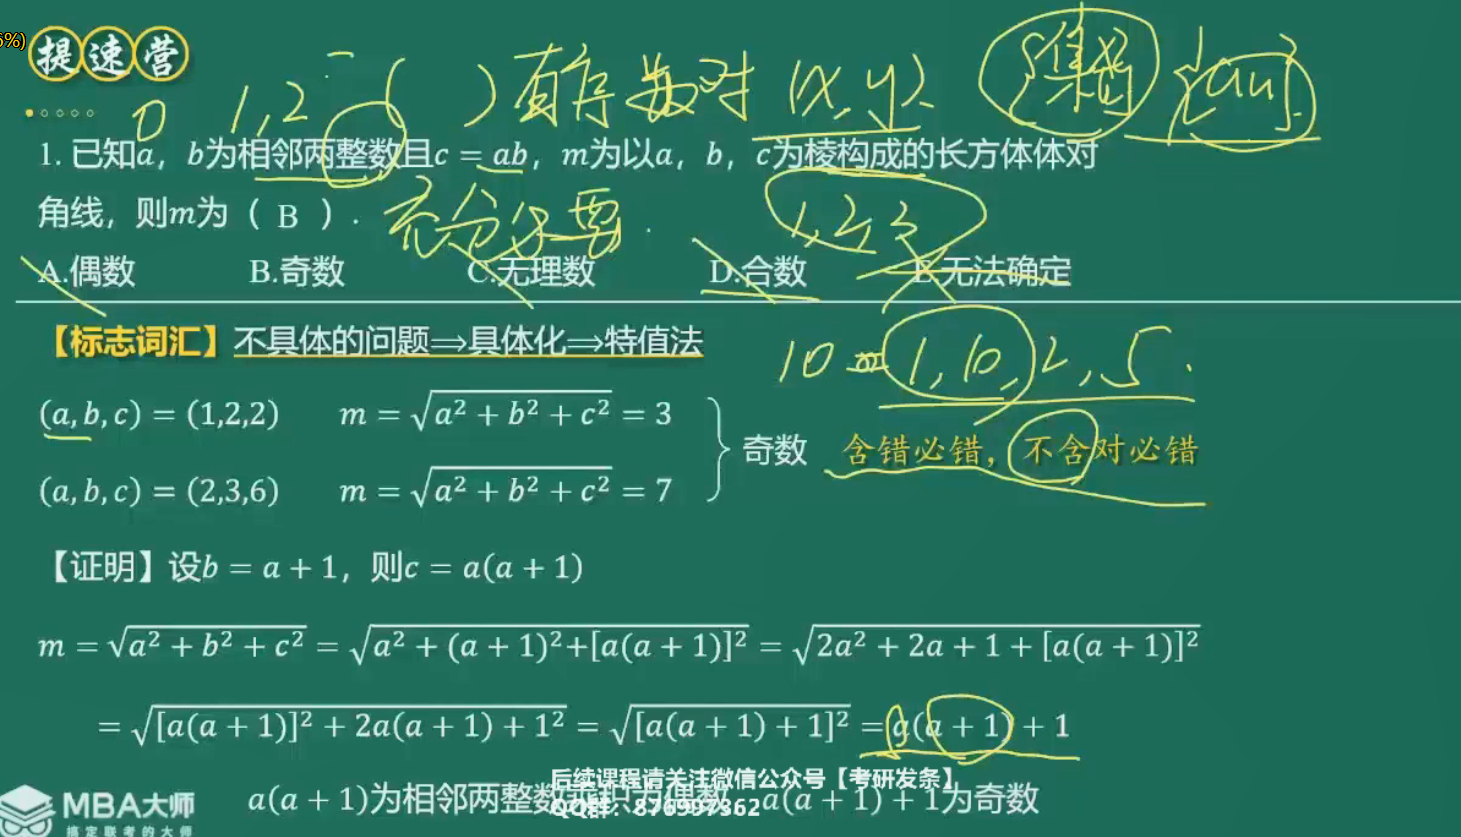 6%)
提速营
0 1,2 ( ) 有序数对 (x,y). {集合}
1. 已知a，b为相邻两整数且c = ab，m为以a，b，c为棱构成的长方体体对
角线，则m为（ B ）.
充分必要 1,2,3
A.偶数 B.奇数 C.无理数 D.合数 E.无法确定
【标志词汇】不具体的问题⟹具体化⟹特值法
10 = 1, 10, 2, 5.
(a, b, c) = (1,2,2) m = √(a² + b² + c²) = 3
奇数 含错必错，不含对必错
(a, b, c) = (2,3,6) m = √(a² + b² + c²) = 7
【证明】设b = a + 1，则c = a(a + 1)
m = √(a² + b² + c²) = √(a² + (a + 1)²+[a(a + 1)]²) = √(2a² + 2a + 1 + [a(a + 1)]²)
= √([a(a + 1)]² + 2a(a + 1) + 1²) = √([a(a + 1) + 1]²) = a(a + 1) + 1
后续课程请关注微信公众号【考研发条】
a(a + 1)为相邻两整数乘积为偶数 a(a + 1) + 1为奇数
QQ群：876997362
MBA大师
搞定联考的大师